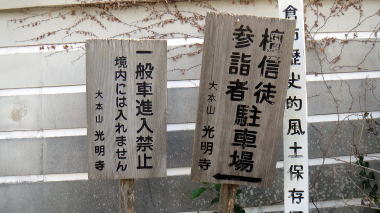 倉市歴史的風土保存
檀信徒
参詣者駐車場
大本山 光明寺
一般車進入禁止
境内には入れません
大本山 光明寺